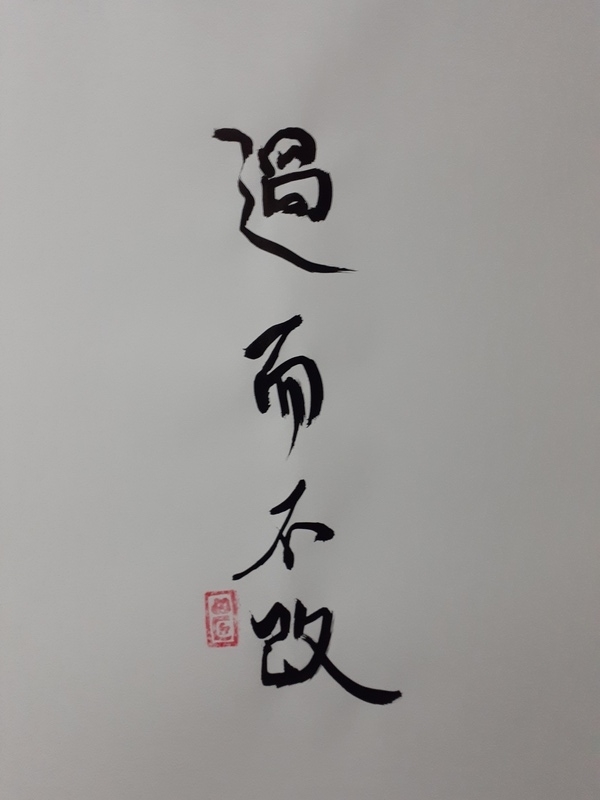 過而不改